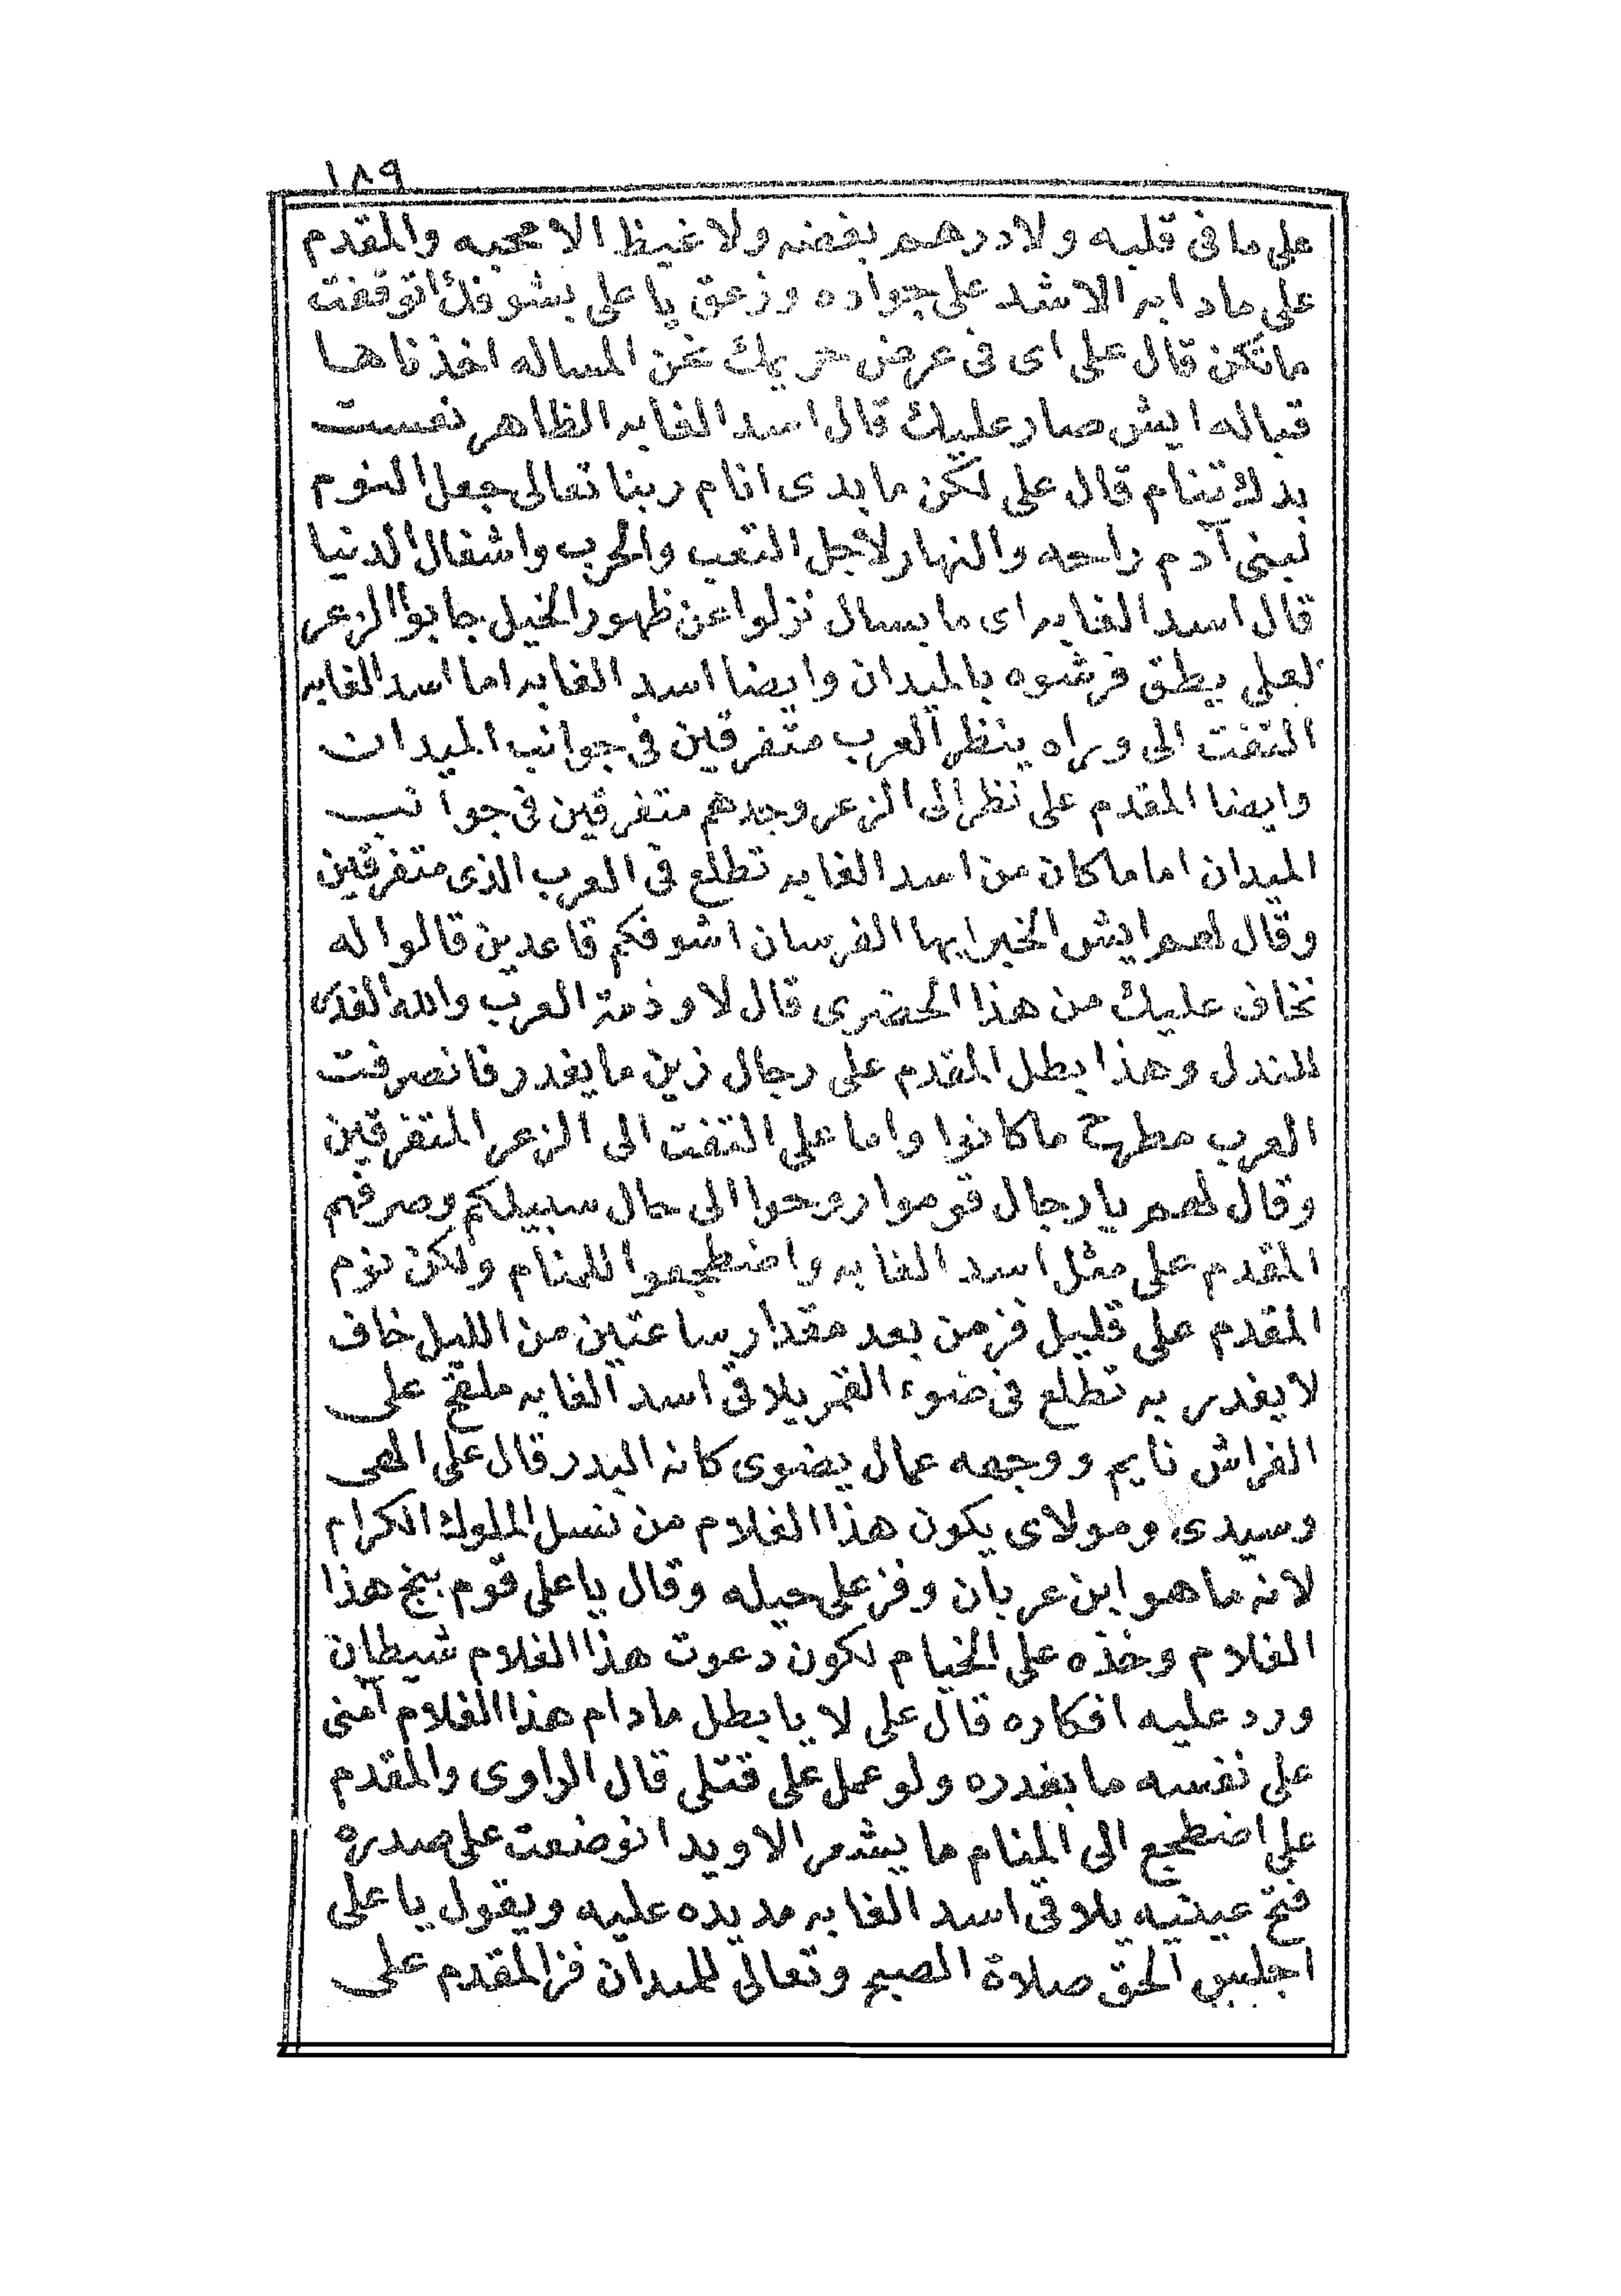 ١٨٩
على ما فى قلبه ولا درهم بغضه ولا غيظ الا محبه والمقدم
على ما دابه الا شد على جواده وزعق يا على بشوفك اتوقفت
ما تكن قال على اى فى عرض حريمك نحن المساله اخذناها
قباله ايش صار عليك قال اسد الغابه الظاهر نعست
بدك تنام قال على لكن ما بدى انام ربنا تعالى جعل النوم
لبنى آدم راحه والنهار لاجل التعب والحرب واشغال الدنيا
قال اسد الغابه اى ما بسال نزلوا عن ظهور الخيل جابوا الزعر
لعلى يطق فرشوه بالميدان وايضا اسد الغابه اما اسد الغابه
التفت الى وراه ينظر العرب متفرقين فى جوانب الميدات
وايضا المقدم على نظر الى الزعر وجدهم متفرقين فى جوانب
الميدان اما ما كان من اسد الغابه تطلع فى العرب الذى متفرقين
وقال لهم ايش الخبر ايها الفرسان اشوفكم قاعدين قالوا له
نخاف عليك من هذا الحضرى قال لا وذمة العرب والله الغدى
للندل وهذا بطل المقدم على رجال زين ما يغدر فانصرفت
العرب مطرح ما كانوا واما على التفت الى الزعر المتفرقين
وقال لهم يا رجال قوموا روحوا الى حال سبيلكم وصرفهم
المقدم على مثل اسد الغابه واضطجعوا للمنام ولكن نوم
المقدم على قليل فز من بعد مقدار ساعتين من الليل خاف
لا يغدر به تطلع فى ضوء القمر يلاقى اسد الغابه ملقح على
الفراش نايم ووجهه عمال يضوى كانه البدر قال على الهى
وسيدى ومولاى يكون هذا الغلام من نسل الملوك الكرام
لانه ما هو ابن عربان وفز على حيله وقال يا على قوم بنج هذا
الغلام وخذه على الخيام لكون دعوت هذا الغلام شيطان
ورد عليه افكاره قال على لا يا بطل ما دام هذا الغلام آمنى
على نفسه ما بغدره ولو عمل على قتلى قال الراوى والمقدم
على اضطجع الى المنام ما يشعر الا ويد انوضعت على صدره
فتح عينيه يلاقى اسد الغابه مد يده عليه ويقول يا على
اجلس الحق صلاة الصبح وتعالى للميدان فز المقدم على